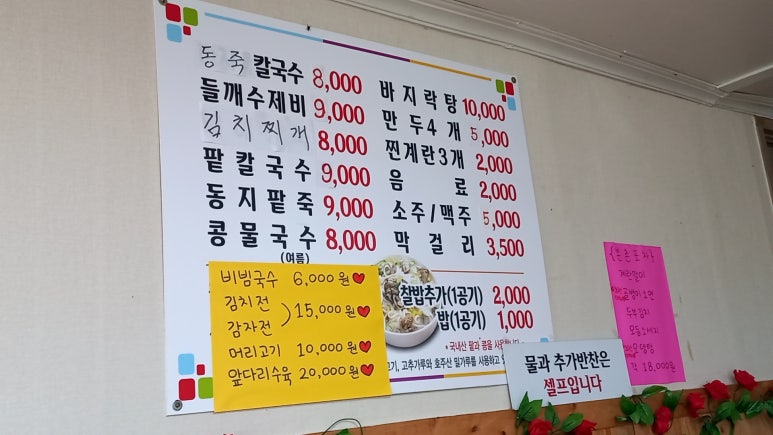 동죽 칼국수 8,000
들깨수제비 9,000
김치찌개 8,000
팥칼국수 9,000
동지팥죽 9,000
콩물국수 8,000
(여름)
바지락탕 10,000
만두4개 5,000
찐계란3개 2,000
음료 2,000
소주/맥주 5,000
막걸리 3,500
찰밥추가(1공기) 2,000
밥(1공기) 1,000
*국내산 팥과 콩을 사용
고추가루와 호주산 밀가루를 사용하고
비빔국수 6,000원♥
김치전
감자전 ) 15,000원♥
머리고기 10,000원♥
앞다리수육 20,000원♥
물과 추가반찬은
셀프입니다
계란말이
골뱅이소면
두부김치
모듬소세지
오뎅탕
각 18,000원